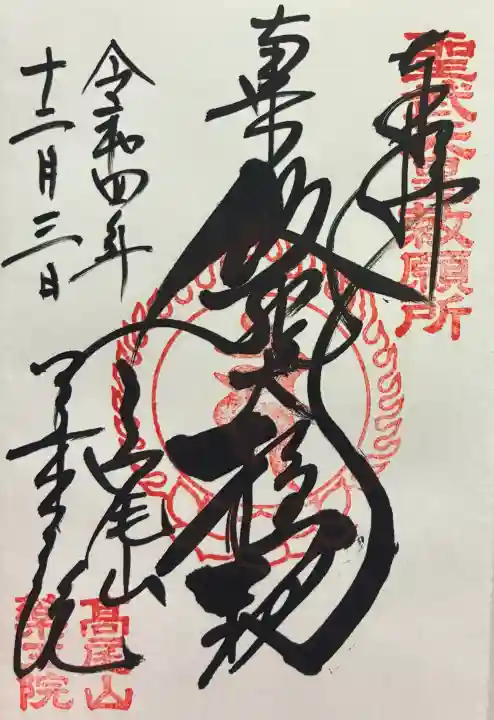 聖武天皇敕願所
奉拝
南無飯縄大権現
高尾山
薬王院
令和四年
十二月三日
高尾山
薬王院